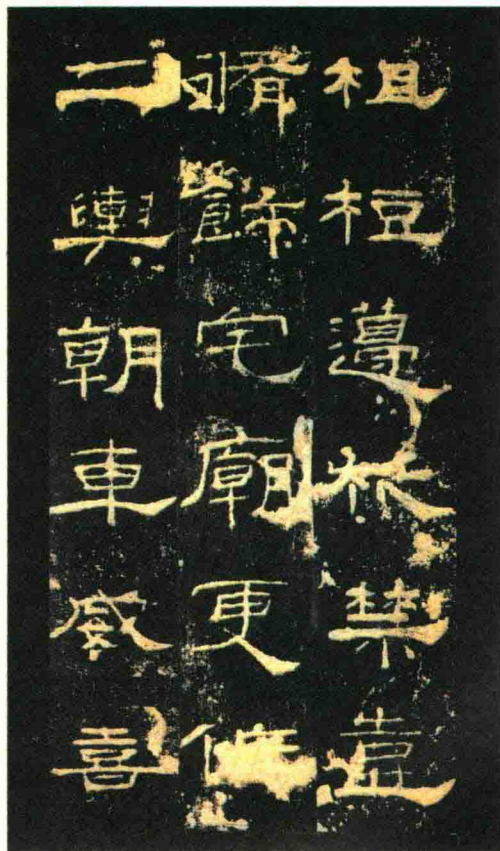 柤梪籩柉禁壺
脩飾宅廟更作
二輿朝車威喜